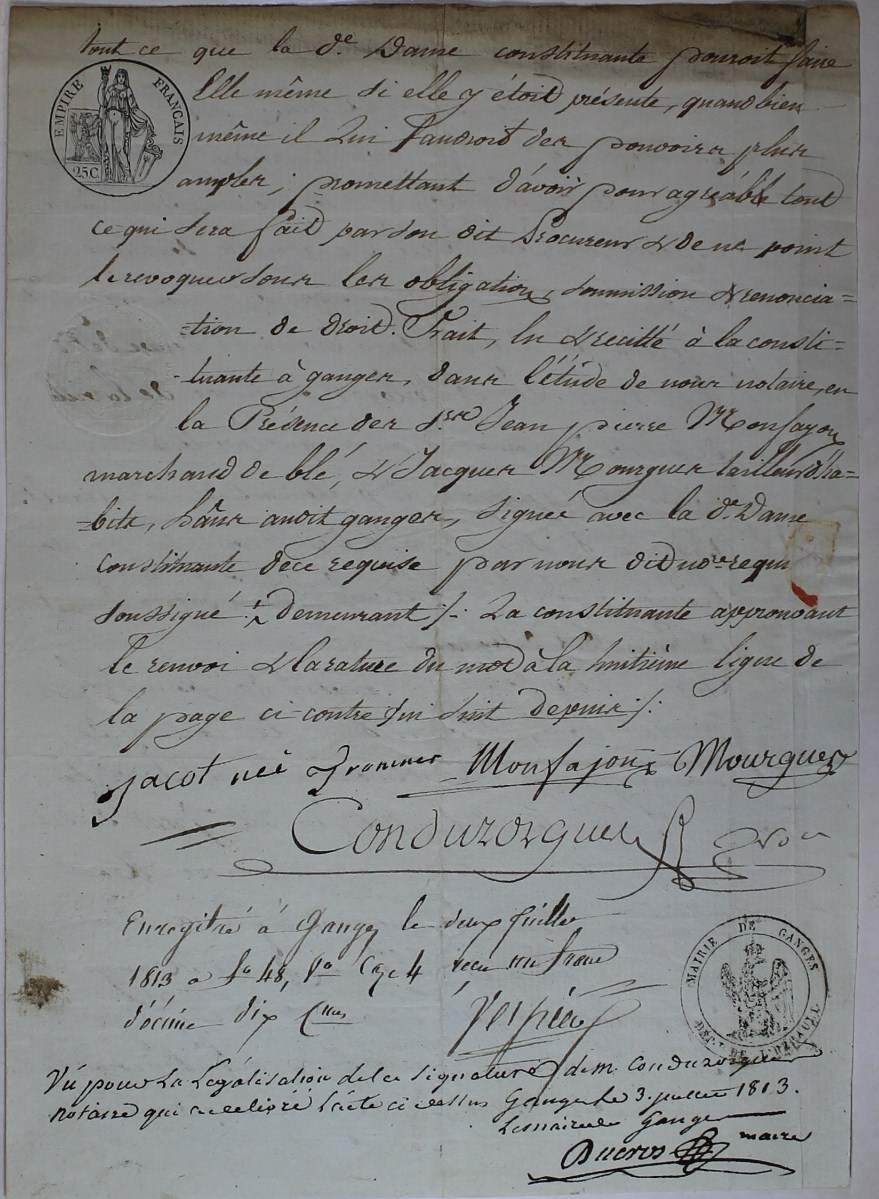 tout ce que la de. Dame constituante pourroit faire
EMPIRE FRANÇAIS
25C
Elle même si elle y étoit présente, quand bien
même il lui faudroit des pouvoirs plus
amples; promettant d'avoir pour agréable tout
ce qui sera fait par son dit Procureur & de ne point
le revoquer sous les obligations, soumission & renoncia=
=tion de droit. Fait, lu & recitté à la consti-
-tuante à ganges, dans l'étude de nous notaire, en
la Présence des Srs. Jean pierre Monfajon
marchand de blé, & Jacques Mourgues tailleur d'ha=
=bits, hâns audit ganges, signés avec la de. Dame
Constituante de ce requise par nous dit nore. requi
soussigné demeurant /. La constituante approuvant
le renvoi & la rature du mot à la huitième ligne de
la page ci-contre qui suit depuis /.
Jacot née Monfajon Mourgues
Conduzorgues nore
Enregitré à Ganges le deux Juillet
1813 a fo 48, Vo Ce 4 recu un franc
décime dix Cmes
MAIRIE DE GANGES
DEPT. DE L'HERAULT
Vu pour la Legalisation de la signature de m. Conduzorgues
notaire qui a delivré l'acte ci dessus Ganges le 3. juillet 1813.
Le maire de Ganges
Ducros maire